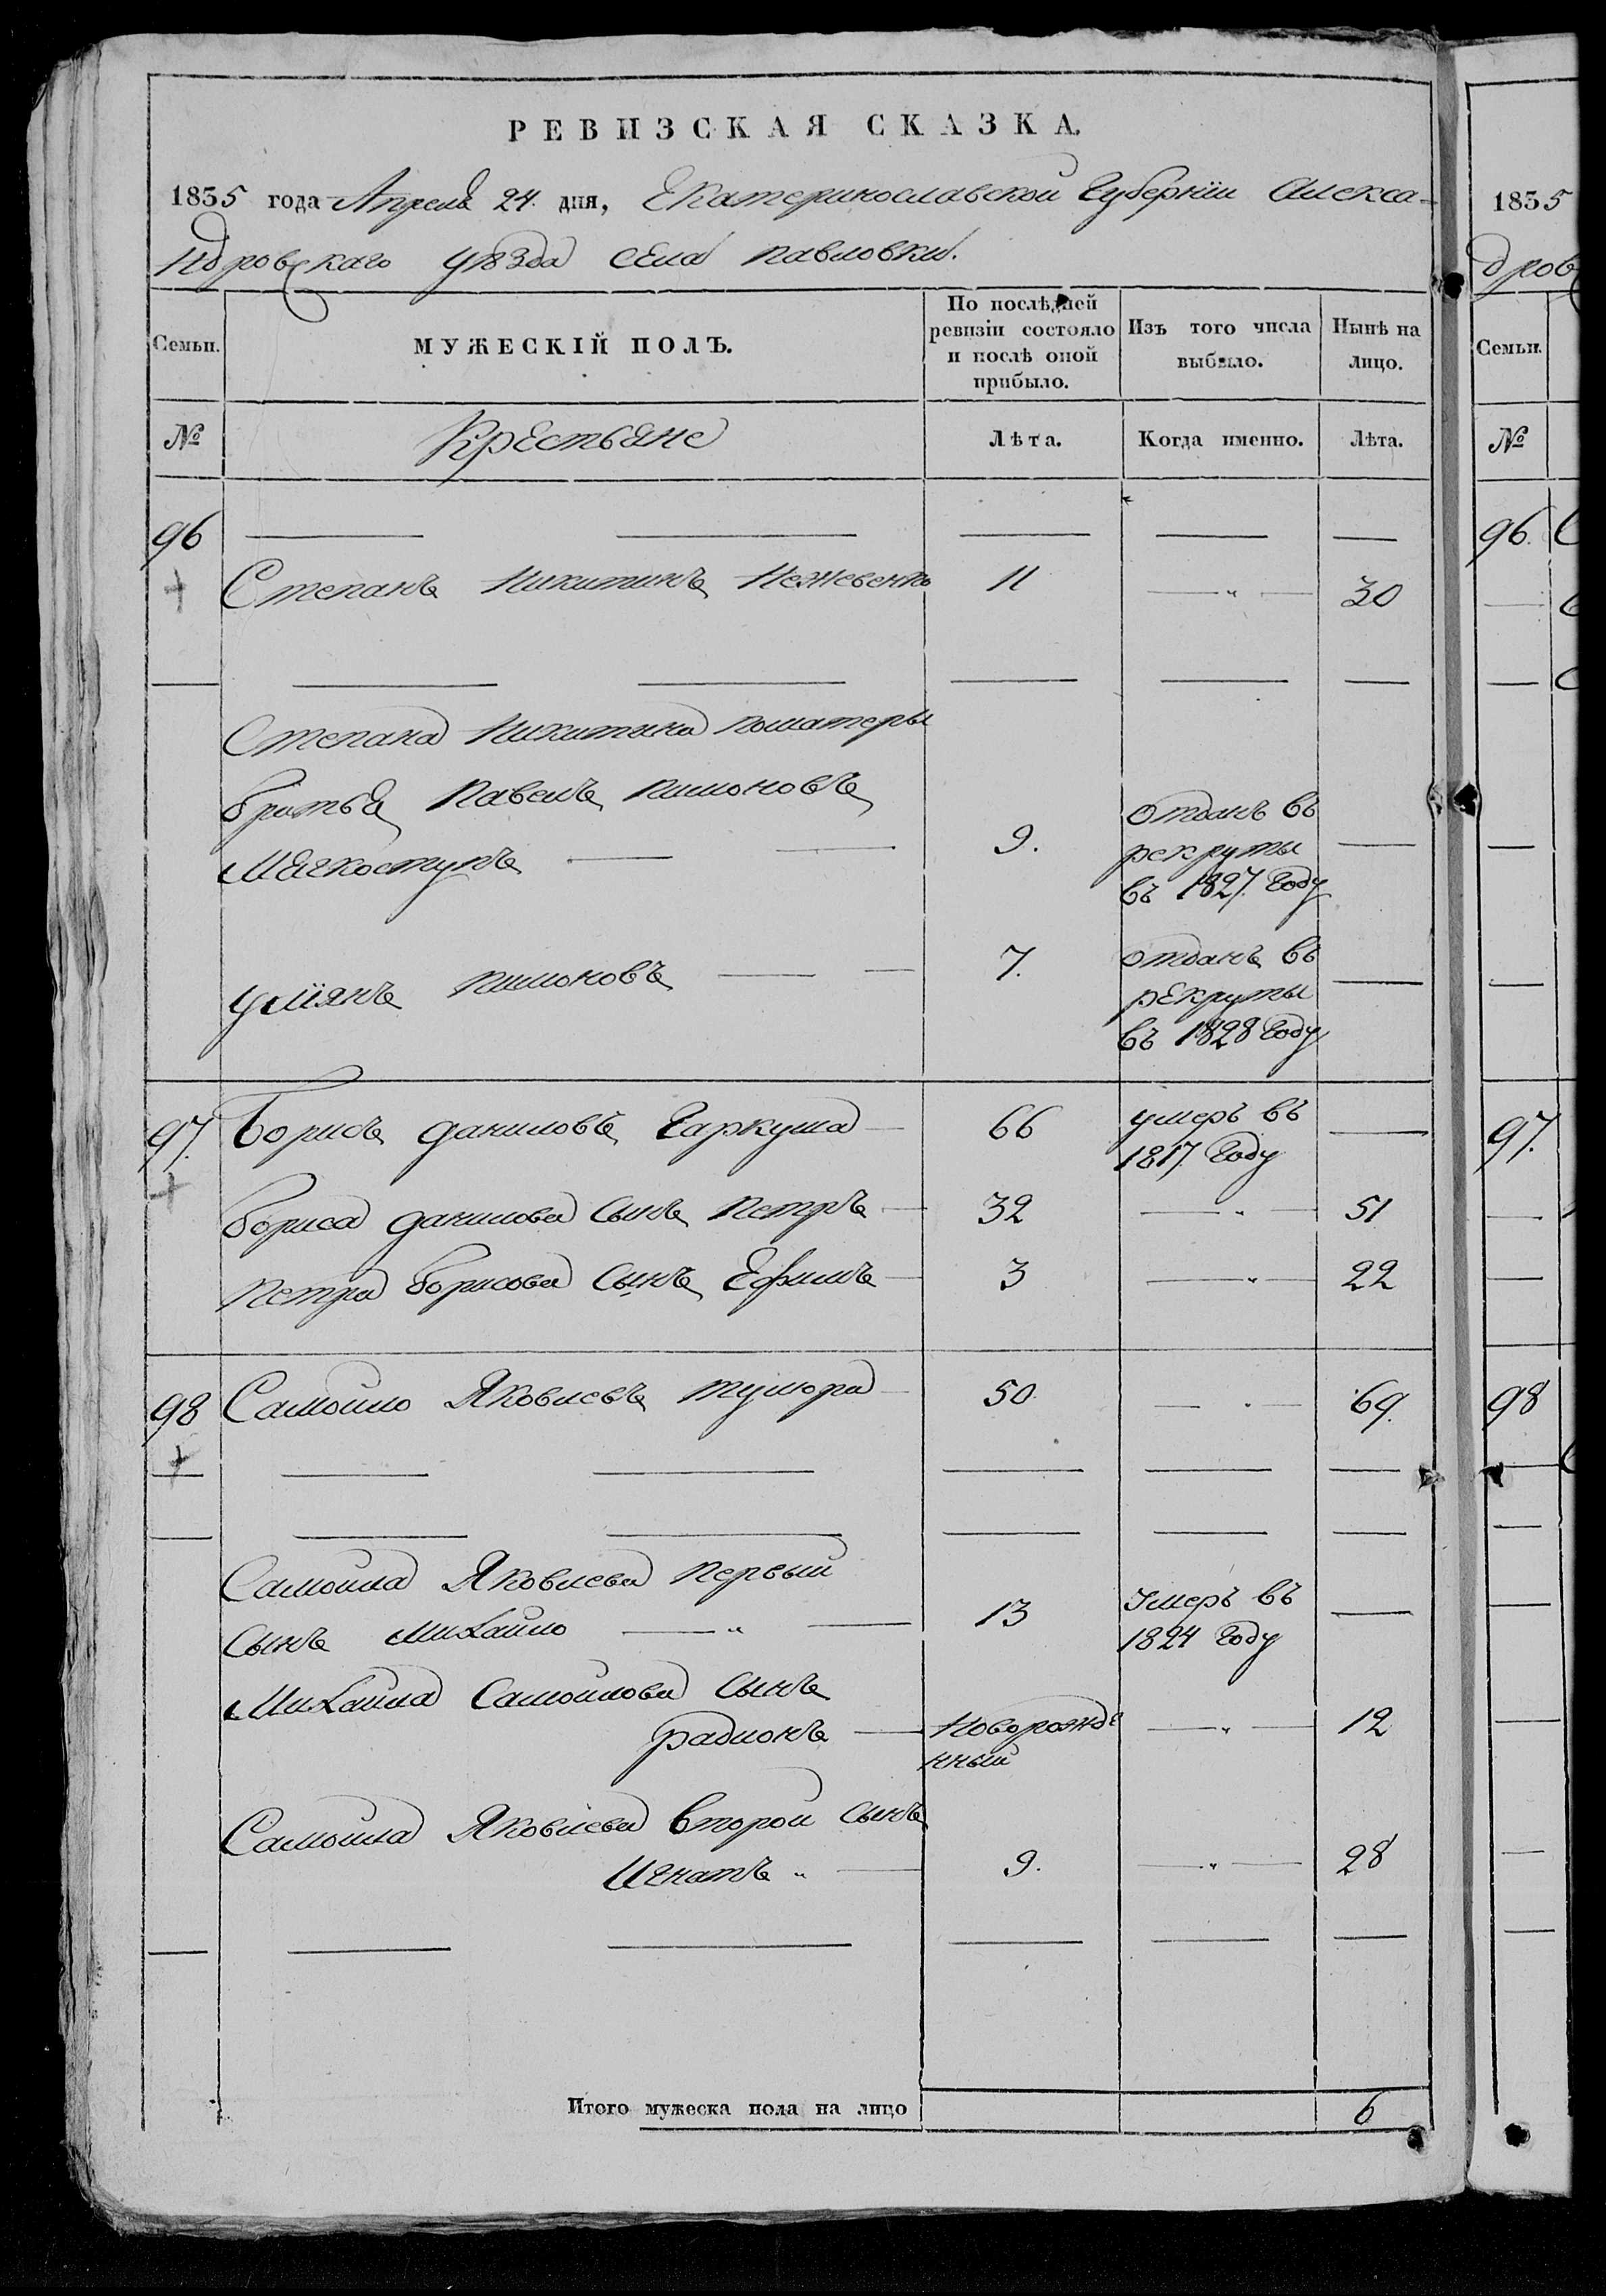 РЕВИЗСКАЯ СКАЗКА.
1835 года Апреля 24. дня, Екатеринославской Губернiи Алекса-
ндровскаго уѣзда села павловки.
Семьи.
МУЖЕСКIЙ ПОЛЪ.
По послѣдней
ревизiи состояло
и послѣ оной
прибыло.
Изъ того числа
выбыло.
Нынѣ на
лицо.
№
Крестьяне
Лѣта.
Когда именно.
Лѣта.
96
Степанъ Никитинъ Нежевенко 11 30
Степана Никитина поматеры
братья Павелъ пимоновъ
Мягкоступъ 9. отданъ въ
рекруты
въ 1827. Году
улiянъ пимоновъ 7. отданъ въ
рекруты
въ 1828 Году
97. Борисъ даниловъ Гаркуша 66 умеръ въ
1817. Году
бориса данилова сынъ петръ 32 51
петра борисова сынъ Ефимъ 3 22
98 Самойло Яковлевъ 50. 69.
Самойла Яковлева первый
сынъ михайло 13 умеръ въ
1824 Году
Михайла Самойлова сынъ
радионъ новорожде 12
нный
Самойла Яковлева второй сынъ
Игнатъ 9. 28
Итого мужеска пола на лицо 6
1835
дров
Семьи.
№
96.
97.
98